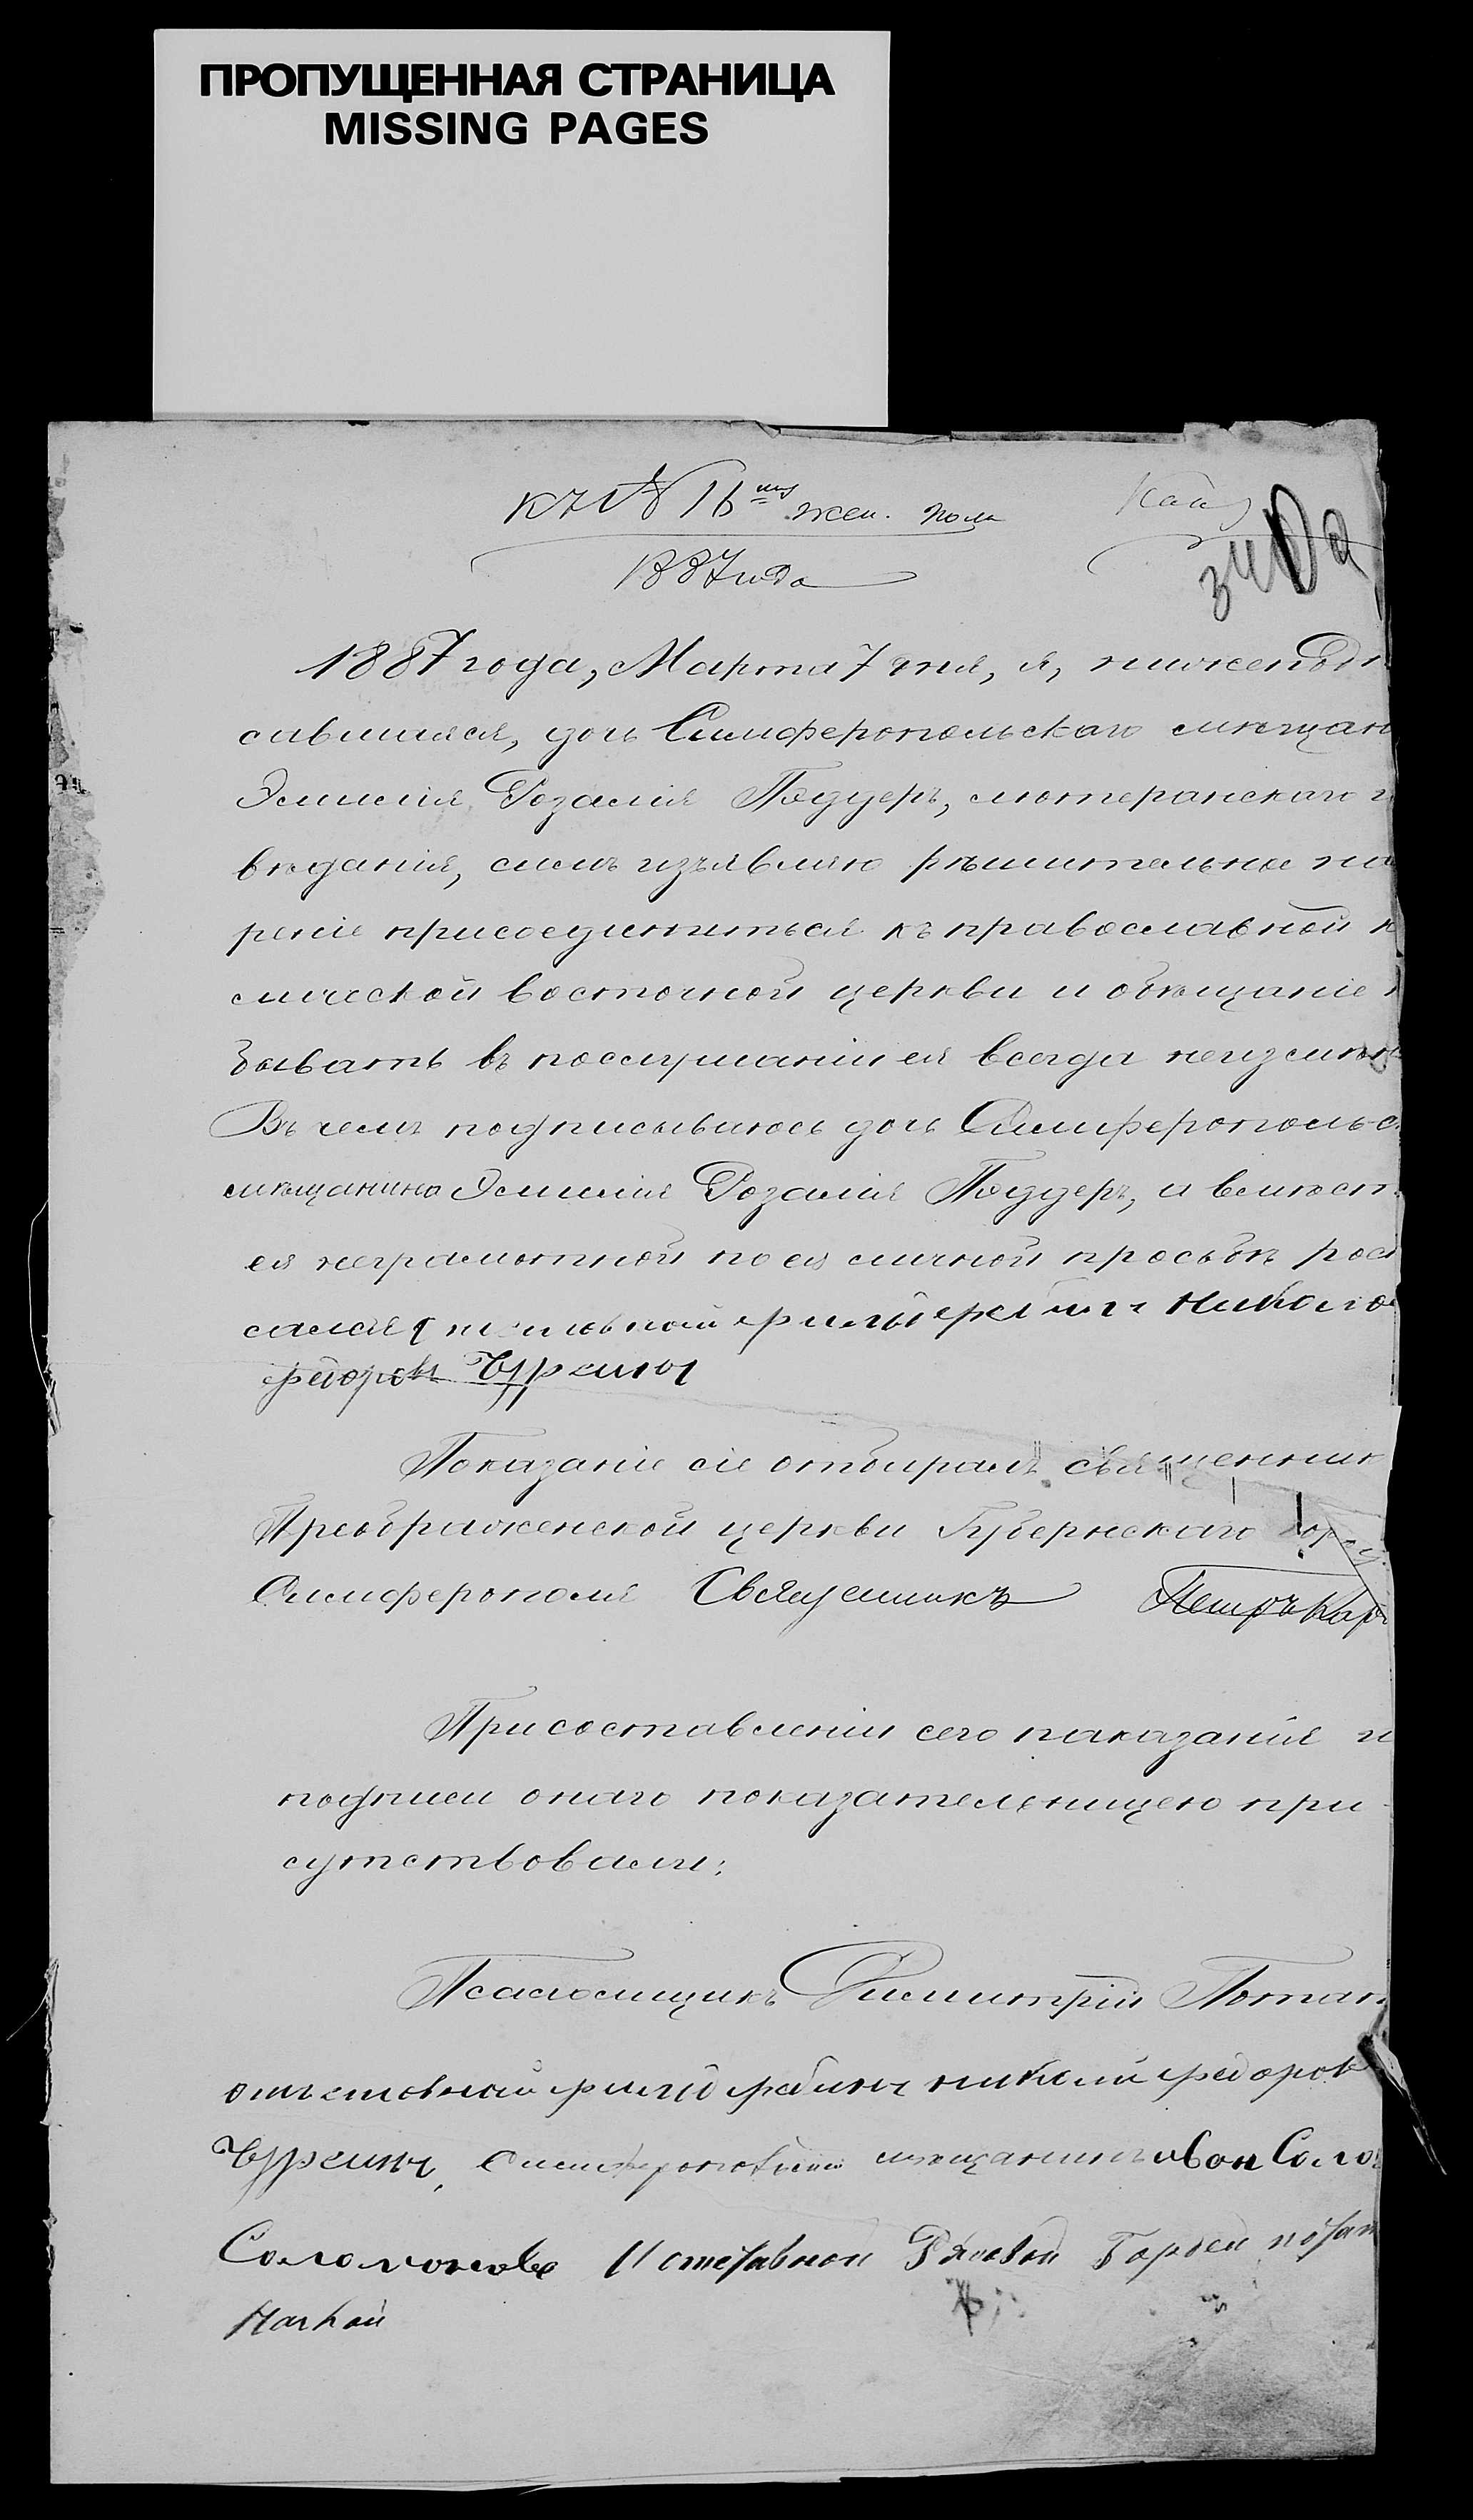 ПРОПУЩЕННАЯ СТРАНИЦА
MISSING PAGES
къ № 16 жен. пола
1887 года
1887 года, Марта 7 дня, я, нижеподп
савшаяся, дочь Симферопольскаго мѣщан
Эмилія Розалія Поддеръ, лютеранскаго и
вѣданія, симъ изъявляю рѣшительное на
реніе присоединиться къ православной к
лической восточной церкви и обѣщаніе
бывать въ послушаніи ея всегда неизмѣн
Въ чемъ подписываюсь дочь Симферопольс
мѣщанина Эмилія Розалія Поддеръ, а вмѣст
ея неграмотной по ея личной просьбѣ рос
Чуркины
Показаніе сіе отбиралъ священник
Преображенской церкви Губернскаго горо
Симферополя Священникъ Петръ Кар
При составленіи сего показанія и
подписи онаго показательницею при-
сутствовали:
Псаломщикъ Димитрій Потап
николай федоров
Чуркины, мѣщанинъ Соло
Соломоновъ И отставной Рядовой Гордей